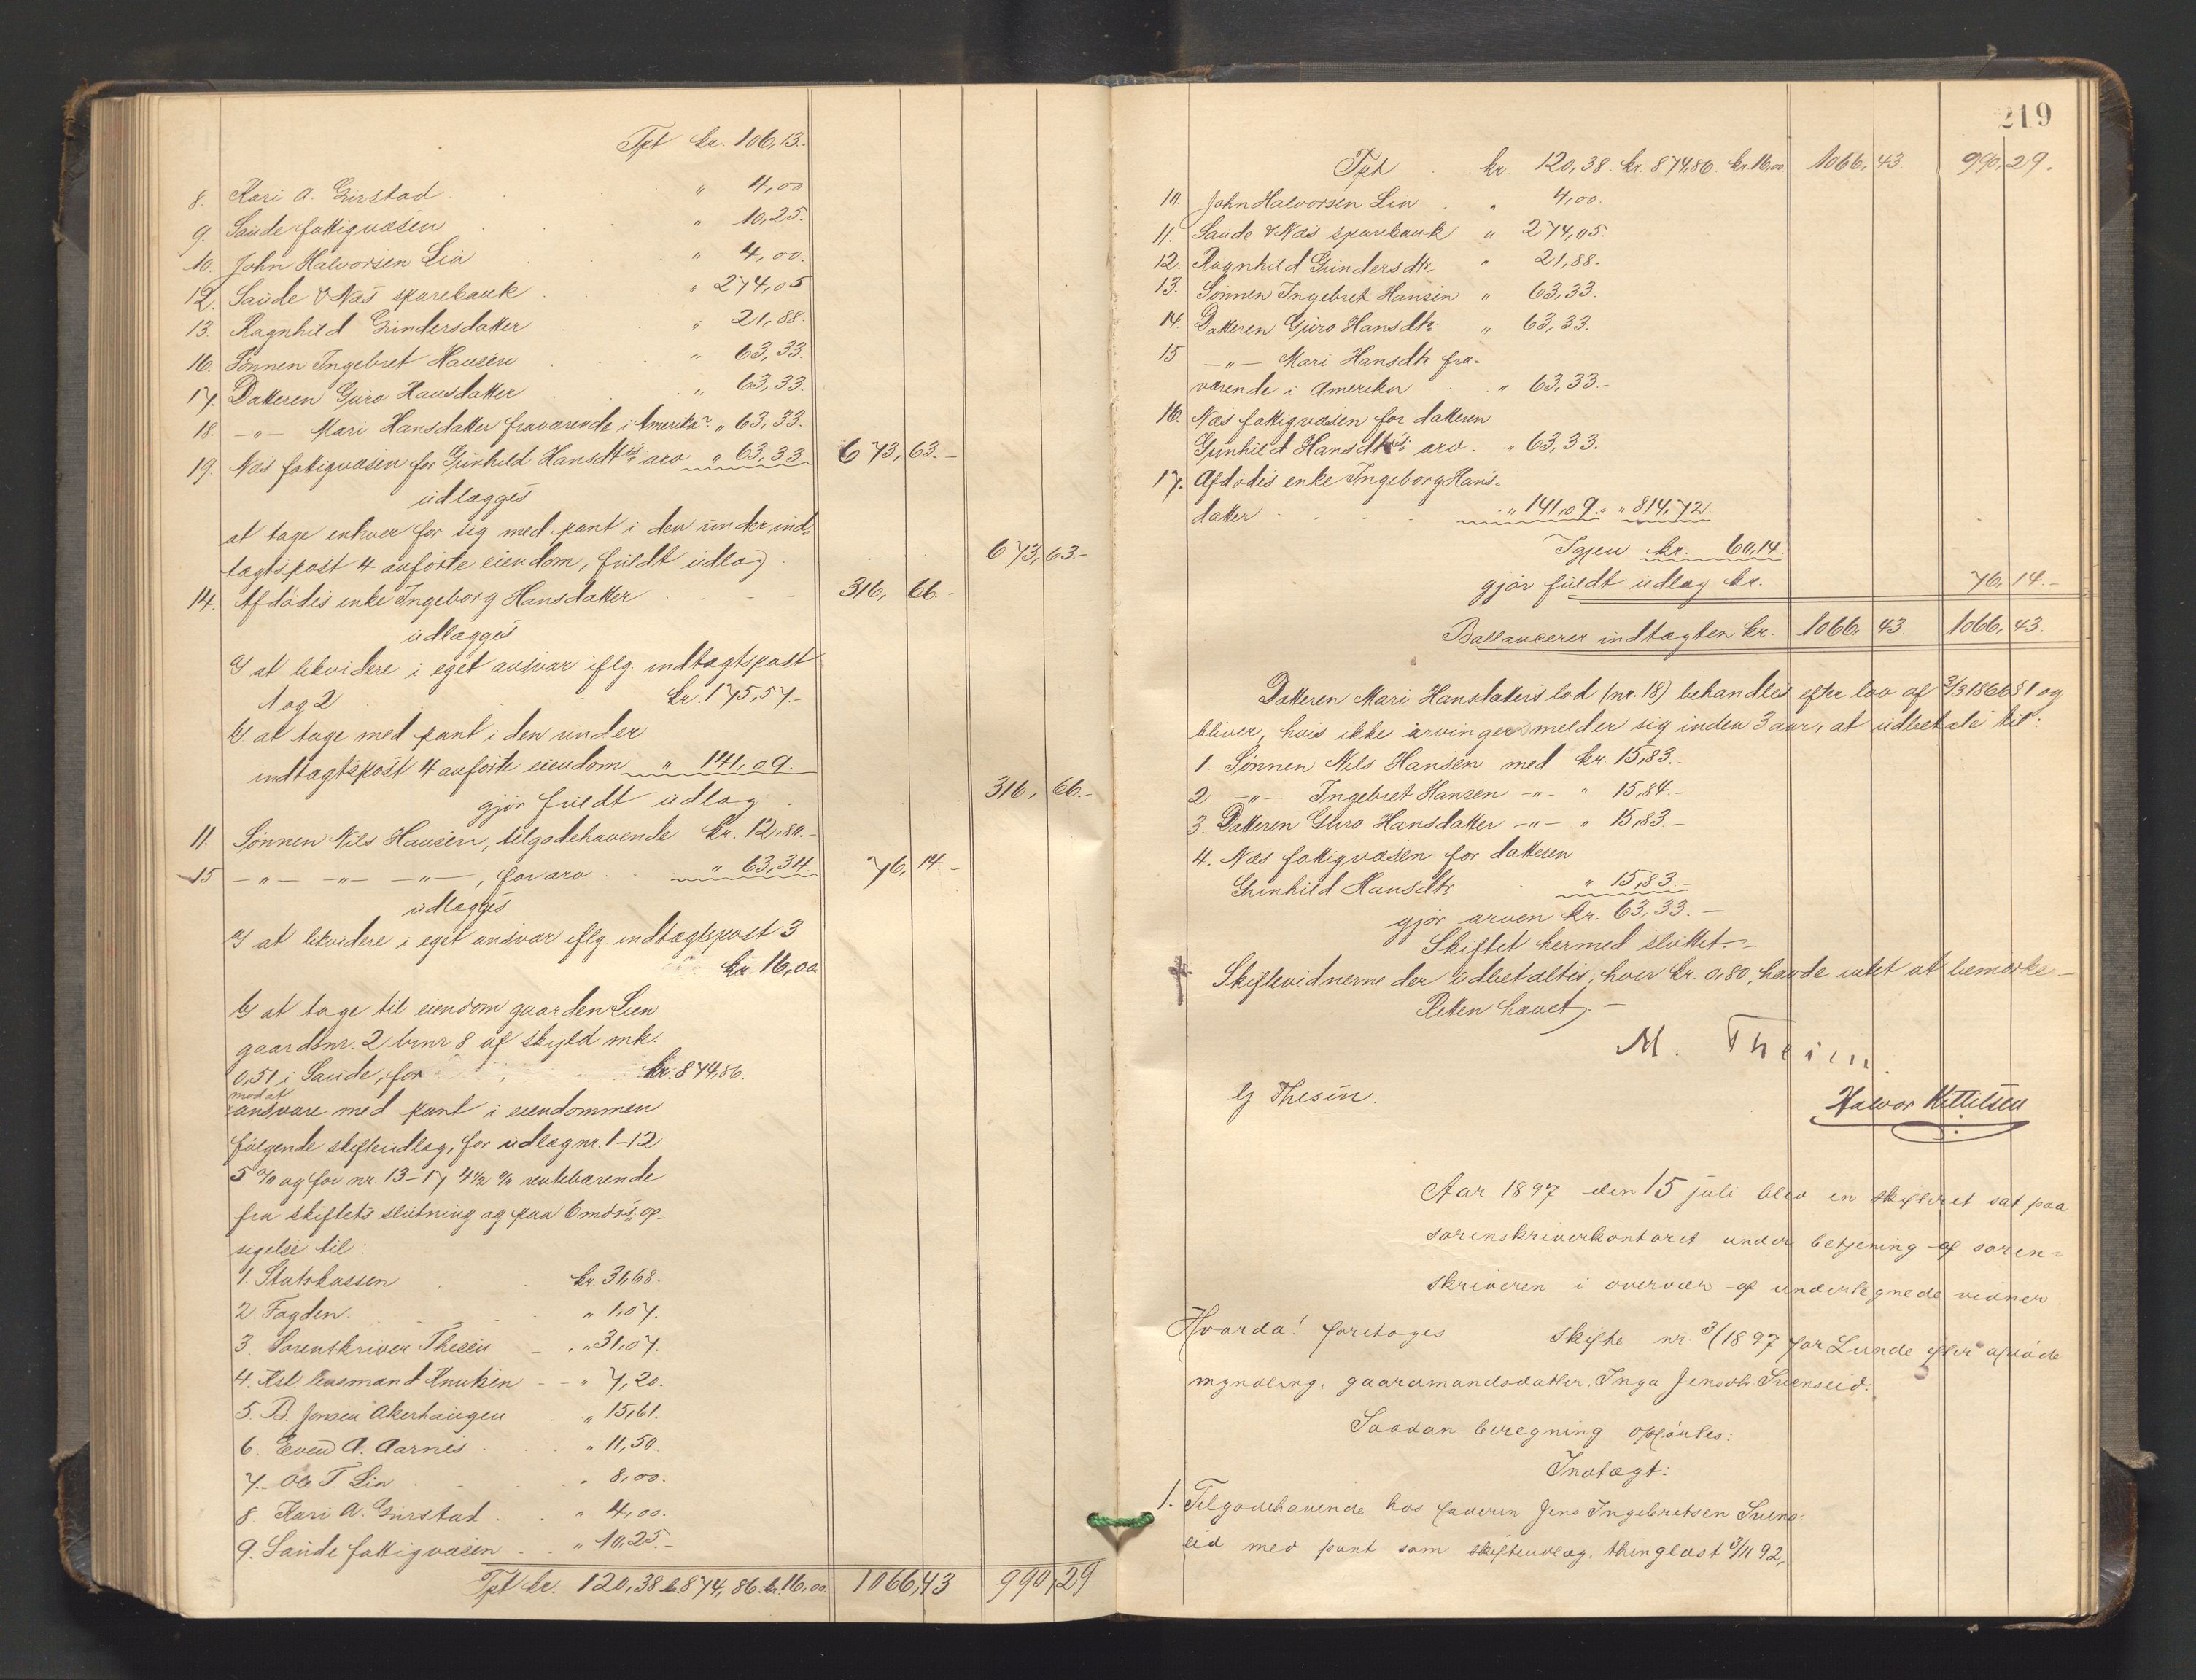 Tpt kr. 106,13.
8. Kari A. Girstad " 4,00
9. Saude fattigvæsen " 10,25.
10. John Halvorsen Lia " 4,00.
12. Saude & Næs sparebank " 274,05
13. Ragnhild Gundersdatter " 21,88.
16. Sønnen Ingebret Hansen " 63,33.
17. Datteren Guro Hansdatter " 63,33.
18. —"— Mari Hansdatter fraværende i Amerika " 63,33.
19. Næs fattigvæsen for Gunhild Hansdtrs arv " 63,33 673,63.–
udlægges
at tage enhver for sig med pant i den under ind-
tægtspost 4 anførte eiendom, fuldt udlæg 673,63.–
14. Afdødes enke Ingeborg Hansdatter 316,66.–
udlægges
a) at likvidere i eget ansvar iflg. indtægtspost
1 og 2 kr. 175,57.–
b) at tage med pant i den under
indtægtspost 4 anførte eiendom " 141,09.
gjør fuldt udlæg 316,66.–
11. Sønnen Nils Hansen, tilgodehavende kr. 12,80.–
15 —"— —"— —"—, for arv " 63,34. 76,14.–
udlægges
a) at likvidere i eget ansvar iflg. indtægtspost 3
kr. 16,00.
b) at tage til eiendom gaarden Lien
gaardsnr. 2 brnr. 8 af skyld mk.
0,51 i Saude, for kr. 874,86.
mod at
ansvare med pant i eiendommen
følgende skifteudlæg, for udlæg nr. 1–12
5 % og for nr. 13–17 4½ % rentebærende
fra skiftets slutning og paa 6 mdrs. op-
sigelse til:
1. Statskassen kr. 31,68.
2. Fogden. " 1,07.
3. Sorenskriver Thesen " 31,07.
4. Kst. lensmand Knutsen " 7,20.
5. B. Jonsen Akerhaugen " 15,61.
6. Even A. Aarnes " 11,50.
7. Ole T. Lia " 8,00.
8. Kari A. Girstad " 4,00.
9. Saude fattigvæsen " 10,25.–
Tpt kr. 120,38 kr. 874,86. kr. 16,00. 1066,43 990,29
219
Tpt kr. 120,38. kr. 874,86. kr. 16,00 1066,43. 990,29.
10. John Halvorsen Lia " 4,00.
11. Saude & Næs sparebank " 274,05.
12. Ragnhild Gundersdtr. " 21,88.
13. Sønnen Ingebret Hansen " 63,33.
14. Datteren Guro Hansdtr. " 63,33.
15 —"— Mari Hansdtr fra-
værende i Amerika " 63,33.–
16. Næs fattigvæsen for datteren
Gunhild Hansdtrs arv. " 63,33.
17. Afdødes enke Ingeborg Hans-
datter " 141,09. " 814,72.
Igjen kr. 60,14.
gjør fuldt udlæg kr. 76,14.–
Ballancerer indtægten kr. 1066,43. 1066,43.
Datteren Mari Hansdatters lod (nr. 18) behandles efter lov af 3/3 1860 § 1 og
bliver, hvis ikke arvinger melder sig inden 3 aar, at udbetale til:
1. Sønnen Nils Hansen med kr. 15,83.–
2 —"— Ingebret Hansen —"— " 15,84.–
3. Datteren Guro Hansdatter —"— " 15,83.–
4. Næs fattigvæsen for datteren
Gunhild Hansdtr. " 15,83.–
gjør arven kr. 63,33.–
Skiftet hermed sluttet.–
Skiftevidnerne der udbetaltes, hver kr. 0,80, havde intet at bemærke.–
Retten hævet.–
M. Thesen.
G Thesen.
Halvor Kittilsen
Aar 1897 den 15 juli blev en skifteret sat paa
sorenskriverkontoret under betjening af soren-
skriveren i overvær af undertegnede vidner.
Hvorda! foretoges skifte nr. 3/1897 for Lunde efter afdøde
myndling, gaardmandsdatter Inga Jensdtr Svenseid.
Saadan beregning opførtes:
Indtægt:
1. Tilgodehavende hos faderen Jens Ingebretsen Svens-
eid med pant som skifteudlæg, thinglæst 3/11 92,